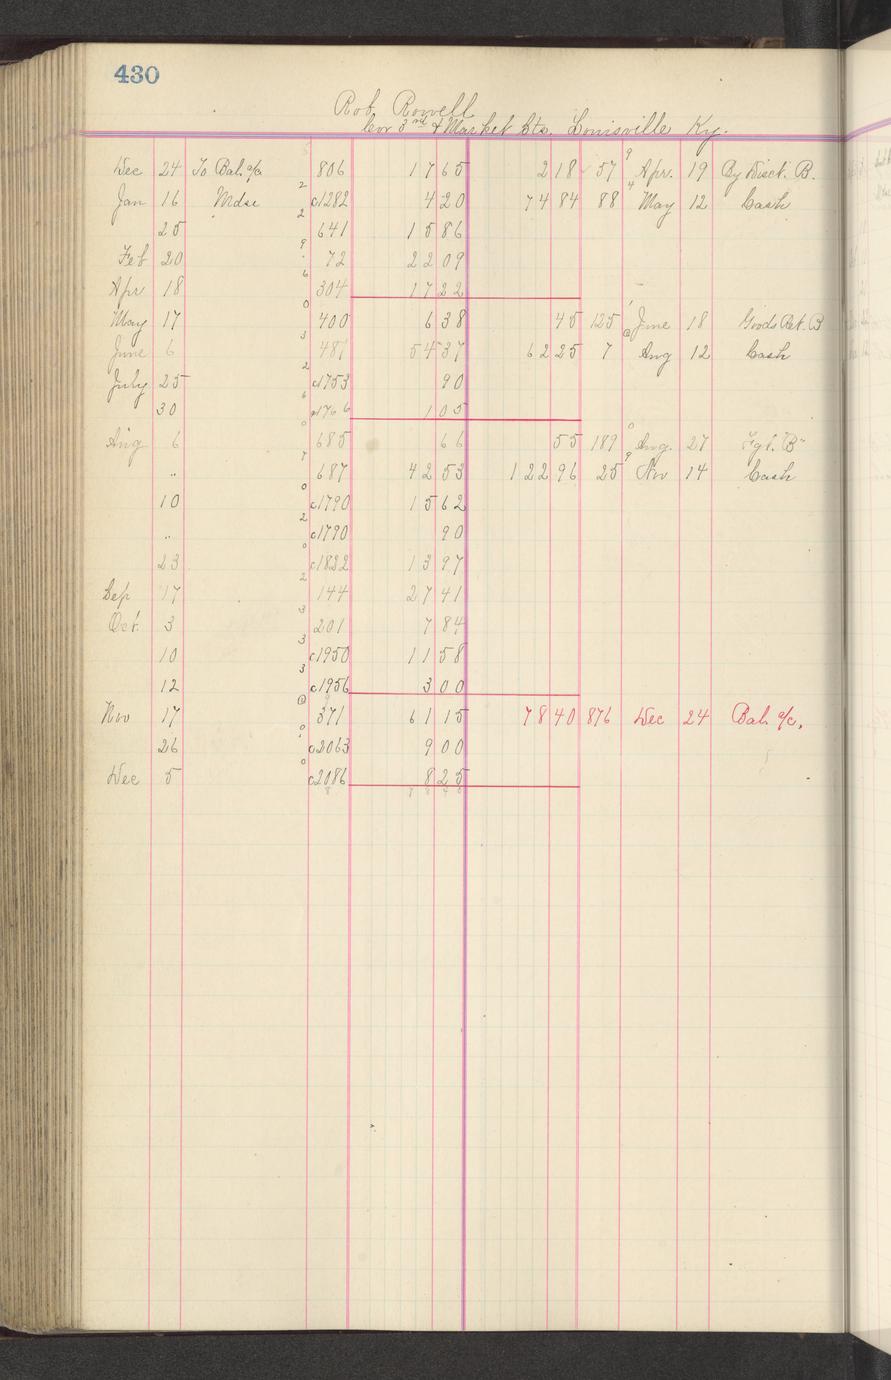 430
Rob. Rowell
Cor 3rd & Market Sts. Louisville Ky.
Dec 24 To Bal. a/c 806 17 65 2 18 57 9 Apr. 19 By Disct. B.
Jan 16 Mdse 2 c1282 4 20 74 84 88 4 May 12 Cash
25 2 641 15 86
Feb 20 9 72 22 09
Apr 18 6 304 17 22
May 17 0 400 6 38 45 125 June 18 Goods Ret. B
June 6 3 487 54 37 62 25 7 Aug 12 Cash
July 25 2 c1753 90
30 6 c1766 1 05
Aug 6 0 685 66 55 189 0 Aug. 27 Fgt. "B"
" 7 687 42 53 122 96 25 9 Nov 14 Cash
10 0 c1790 15 62
" 2 c1790 90
23 0 c1832 13 97
Sep 17 2 144 27 41
Oct. 3 3 201 7 84
10 3 c1950 11 58
12 3 c1956 3 00
Nov 17 371 61 15 78 40 876 Dec 24 Bal. a/c.
26 0 c2063 9 00
Dec 5 0 c2086 8 25